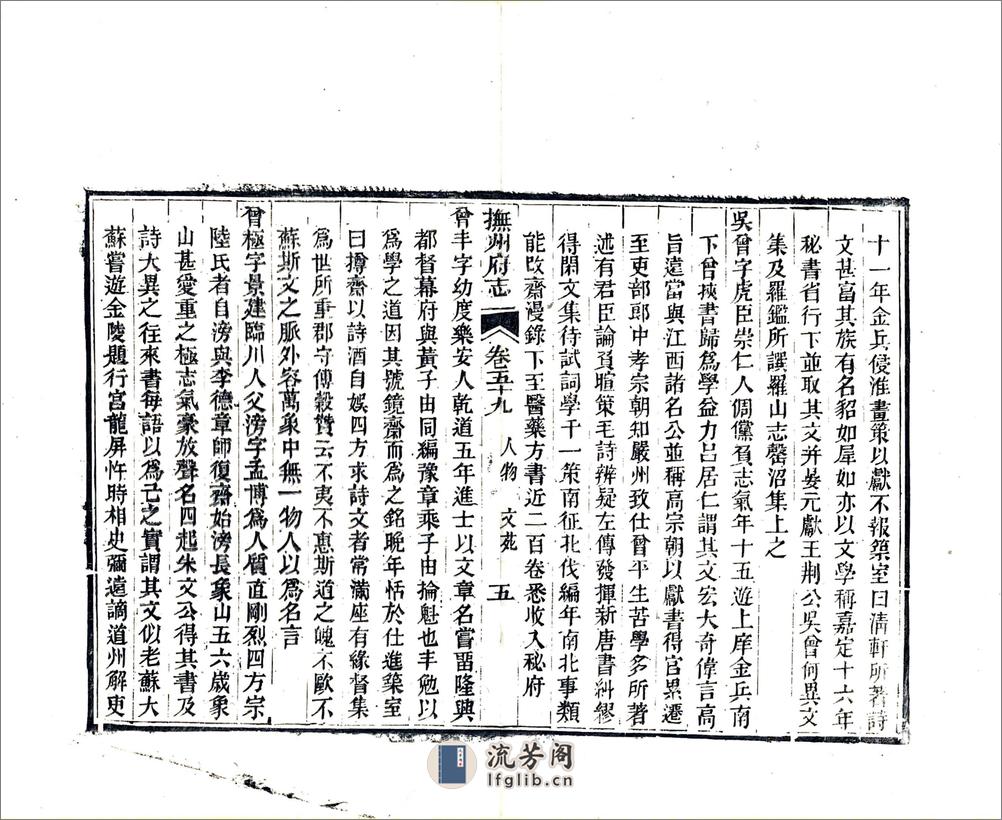 十一年金兵侵淮畫策以獻不報築室曰清軒所著詩
文甚富其族有名貂如犀如亦以文學稱嘉定十六年
秘書省行下並取其文并晏元獻王荆公吳曾何異文
集及羅鑑所譔羅山志磬沼集上之
吳曾字虎臣崇仁人倜儻負志氣年十五遊上庠金兵南
下曾挾書歸爲學益力呂居仁謂其文宏大奇偉言高
旨遠當與江西諸名公並稱高宗朝以獻書得官累遷
至吏部郎中孝宗朝知嚴州致仕曾平生苦學多所著
述有君臣論負暄策毛詩辨疑左傳發揮新唐書糾繆
得閑文集待試詞學千一策南征北伐編年南北事類
能改齋漫錄下至醫藥方書近二百卷悉收入秘府
撫州府志 卷五十九 人物 文苑 五
曾丰字幼度樂安人乾道五年進士以文章名嘗留隆興
都督幕府與黃子由同編豫章乘子由掄魁也丰勉以
爲學之道因其號鏡齋而爲之銘晚年恬於仕進築室
曰撙齋以詩酒自娛四方求詩文者常滿座有緣督集
爲世所重郡守傅穀贊云不夷不惠斯道之媿不歐不
蘇斯文之脈外容萬象中無一物人以爲名言
曾極字景建臨川人父滂字孟博爲人質直剛烈四方宗
陸氏者自滂與李德章師復齋始滂長象山五六歲象
山甚愛重之極志氣豪放聲名四起朱文公得其書及
詩大異之往來書每語以爲己之實謂其文似老蘇大
蘇嘗遊金陵題行宮龍屏忤時相史彌遠謫道州解吏
流芳阁
lfglib.cn